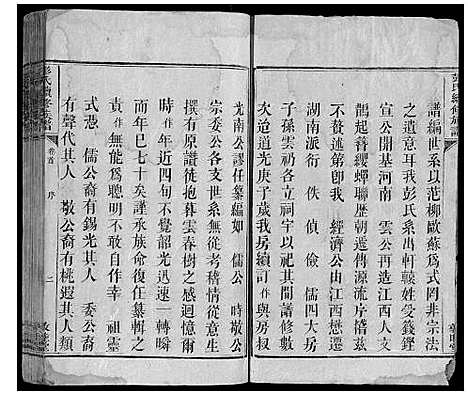 彭氏續修族譜
譜編世系以范柳歐蘇爲式罔非宗法
之遺意耳我彭氏系出軒轅姓受籛鏗
宣公開基河南 雲公再造江西人文
鵲起簪纓蟬聯歷朝遷傳源流斥積茲
不贅述第卽我 經濟公由江西懋遷
湖南派衍 佚 偵 儉 儒四大房
子孫雲礽各立祠宇以祀其間譜修數
次迨道光庚子歲我房續訂作與房叔
光南公謬任纂編如 儒公 時敬公
宗委公各支世系無從考稽情從意生
撰有原譜徒抱暮雲春樹之感迴憶爾
時作年近四旬不覺韶光迅速一轉瞬
而年巳七十矣謹承族命復任纂輯之
責作無能爲聰明不敢自作幸 祖靈
式憑 儒公裔有錫光其人 委公裔
有聲代其人 敬公裔有桃遐其人類
彭氏續修族譜 卷首 序 二